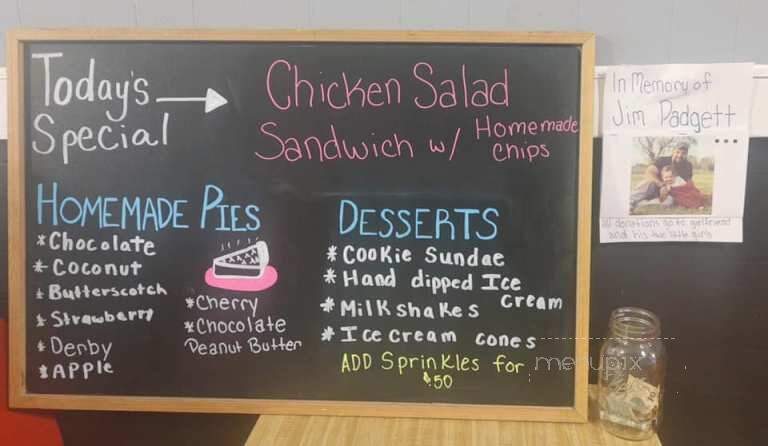 Today's
Special
Chicken Salad
Sandwich w/ Homemade
chips
HOMEMADE PIES
*Chocolate
*Coconut
*Butterscotch
*Strawberry
*Derby
*APPle
*Cherry
*Chocolate
Peanut Butter
DESSERTS
*Cookie Sundae
*Hand dipped Ice
Cream
*Milkshakes
*Ice cream cones
ADD Sprinkles for
$.50
In Memory of
Jim Padgett
All donations go to girlfriend
and his two little girls
menupix